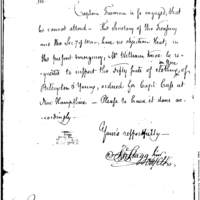 Sir
Captain Freeman is so engaged, that
he cannot attend - The Secretary of the Treasury
and the Secy of War, have no objection that, in
the present emergency, Mr Wetherill should be re-
quested to inspect the Fifty suits of clothing of
Billington & Young, ordered for Capt Cass at
New Hampshire - Please to know it done ac-
cordingly.
Yours respectfully -
Jno Stagg Junr